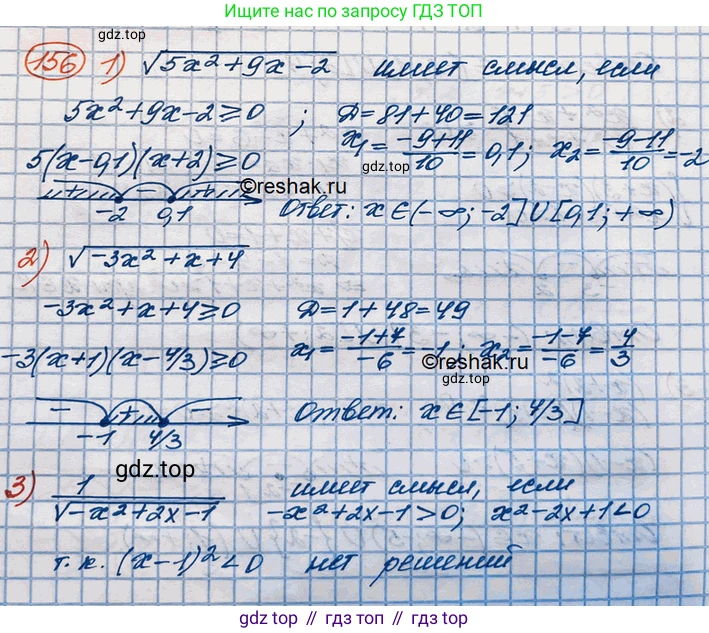 Ищите нас по запросу ГДЗ ТОП
156 1) √(5x²+9x-2) имеет смысл, если
5x²+9x-2⩾0 ; D=81+40=121
x₁=(-9+11)/10=0,1; x₂=(-9-11)/10=-2
gdz.top
5(x-0,1)(x+2)⩾0
©reshak.ru
+ - +
-2 0,1 Ответ: x∈(-∞;-2]∪[0,1;+∞)
2) √(-3x²+x+4)
-3x²+x+4⩾0 D=1+48=49
-3(x+1)(x-4/3)⩾0 x₁=(-1+7)/-6=-1; x₂=(-1-7)/-6=4/3
©reshak.ru
gdz.top
- + -
-1 4/3 Ответ: x∈[-1; 4/3]
gdz.top
3) 1/√(-x²+2x-1) имеет смысл, если
-x²+2x-1>0; x²-2x+1<0
т.к. (x-1)²<0 нет решений
gdz топ // гдз топ // gdz.top